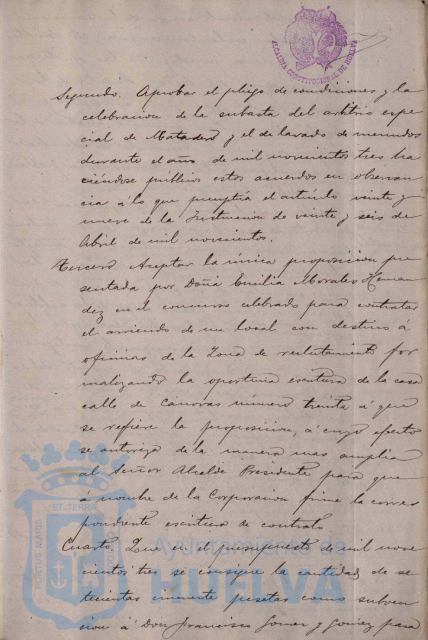 ALCALDIA CONSTITUCIONAL DE HUELVA
Segundo. Aprobar el pliego de condiciones y la
celebracion de la subasta del arbitrio espe
cial de Matadero y el de lavado de menudos
durante el año de mil novecientos tres ha
ciéndose públicos estos acuerdos en observan
cia á lo que preceptúa el artículo veinte y
nueve de la Instruccion de veinte y seis de
Abril de mil novecientos.
Tercero Aceptar la única proposicion pre
sentada por Doña Emilia Morales Hernan
dez en el concurso celebrado para contratar
el arriendo de un local con destino á
oficinas de la Zona de reclutamiento for
malizando la oportuna escritura de la casa
calle de Canovas número treinta á que
se refiere la proposicion, á cuyo efecto
se autoriza de la manera mas amplia
al Señor Alcalde Presidente para que
á nombre de la Corporacion firme la corres
pondiente escritura de contrato
Cuarto Que en el presupuesto de mil nove
cientos tres se consigne la cantidad de se
tecientas cincuenta pesetas como subven
cion á Don Francisco Gomez y Gomez para
PORTUS MARIS ET TERRÆ
Ayuntamiento de
HUELVA